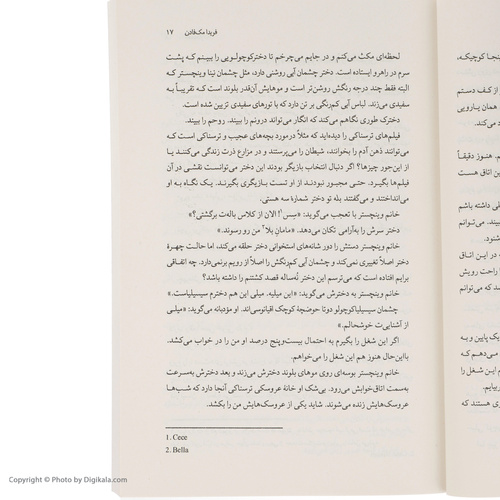 فریدا مک‌فادن ۱۷
لحظه‌ای مکث می‌کنم و در جایم می‌چرخم تا دخترکوچولویی را ببینم که پشت
سرم در راهرو ایستاده است. دختر چشمان آبی روشنی دارد، مثل چشمان نینا وینچستر که
البته فقط چند درجه رنگش روشن‌تر است و موهایش آن‌قدر بلوند است که تقریباً به
سفیدی می‌زند. لباس آبی کم‌رنگی بر تن دارد که با تورهای سفیدی تزیین شده است.
دخترک طوری نگاهم می‌کند که انگار می‌تواند درونم را ببیند. روحم را ببیند.
فیلم‌های ترسناکی را دیده‌اید که مثلاً درمورد بچه‌های عجیب و ترسناکی است که
می‌توانند ذهن آدم را بخوانند، شیطان را می‌پرستند و در مزارع ذرت زندگی می‌کنند یا
از این‌جور چیزها؟ اگر دنبال انتخاب بازیگر بودند این دختر می‌توانست نقشی در آن
فیلم‌ها بگیرد. حتی مجبور نبودند از او تست بازیگری بگیرند. یک نگاه به او
می‌انداختند و می‌گفتند بله تو دختر شمارهٔ سه هستی.
خانم وینچستر با تعجب می‌گوید: «سِس¹! الان از کلاس باله‌ت برگشتی؟»
دختر سرش را به‌آرامی تکان می‌دهد. «مامانِ بلا² من رو رسوند.»
خانم وینچستر دستش را دور شانه‌های استخوانی دختر حلقه می‌کند، اما حالت چهرهٔ
دختر اصلاً تغییری نمی‌کند و چشمان آبی کم‌رنگش را اصلاً از رویم برنمی‌دارد. چه اتفاقی
برایم افتاده است که می‌ترسم این دختر نُه‌ساله قصد کشتنم را داشته باشد؟
خانم وینچستر به دخترش می‌گوید: «این میلیه. میلی این هم دخترم سیسیلیاست.»
چشمان سیسیلیا‌کوچولو دوتا حوضچهٔ کوچک اقیانوسی‌اند. او مؤدبانه می‌گوید: «میلی
از آشنایی‌ت خوشحالم.»
اگر این شغل را بگیرم به احتمال بیست‌وپنج درصد او من را در خواب می‌کشد.
بااین‌حال هنوز هم این شغل را می‌خواهم.
خانم وینچستر بوسه‌ای روی موهای بلوند دخترش می‌زند و بعد دخترش به‌سرعت
به‌سمت اتاق‌خوابش می‌رود. بی‌شک او خانهٔ عروسکی ترسناکی آنجا دارد که شب‌ها
عروسک‌هایش زنده می‌شوند. شاید یکی از عروسک‌هایش من را بکشد.
1. Cece
2. Bella
Copyright © Photo by Digikala.com